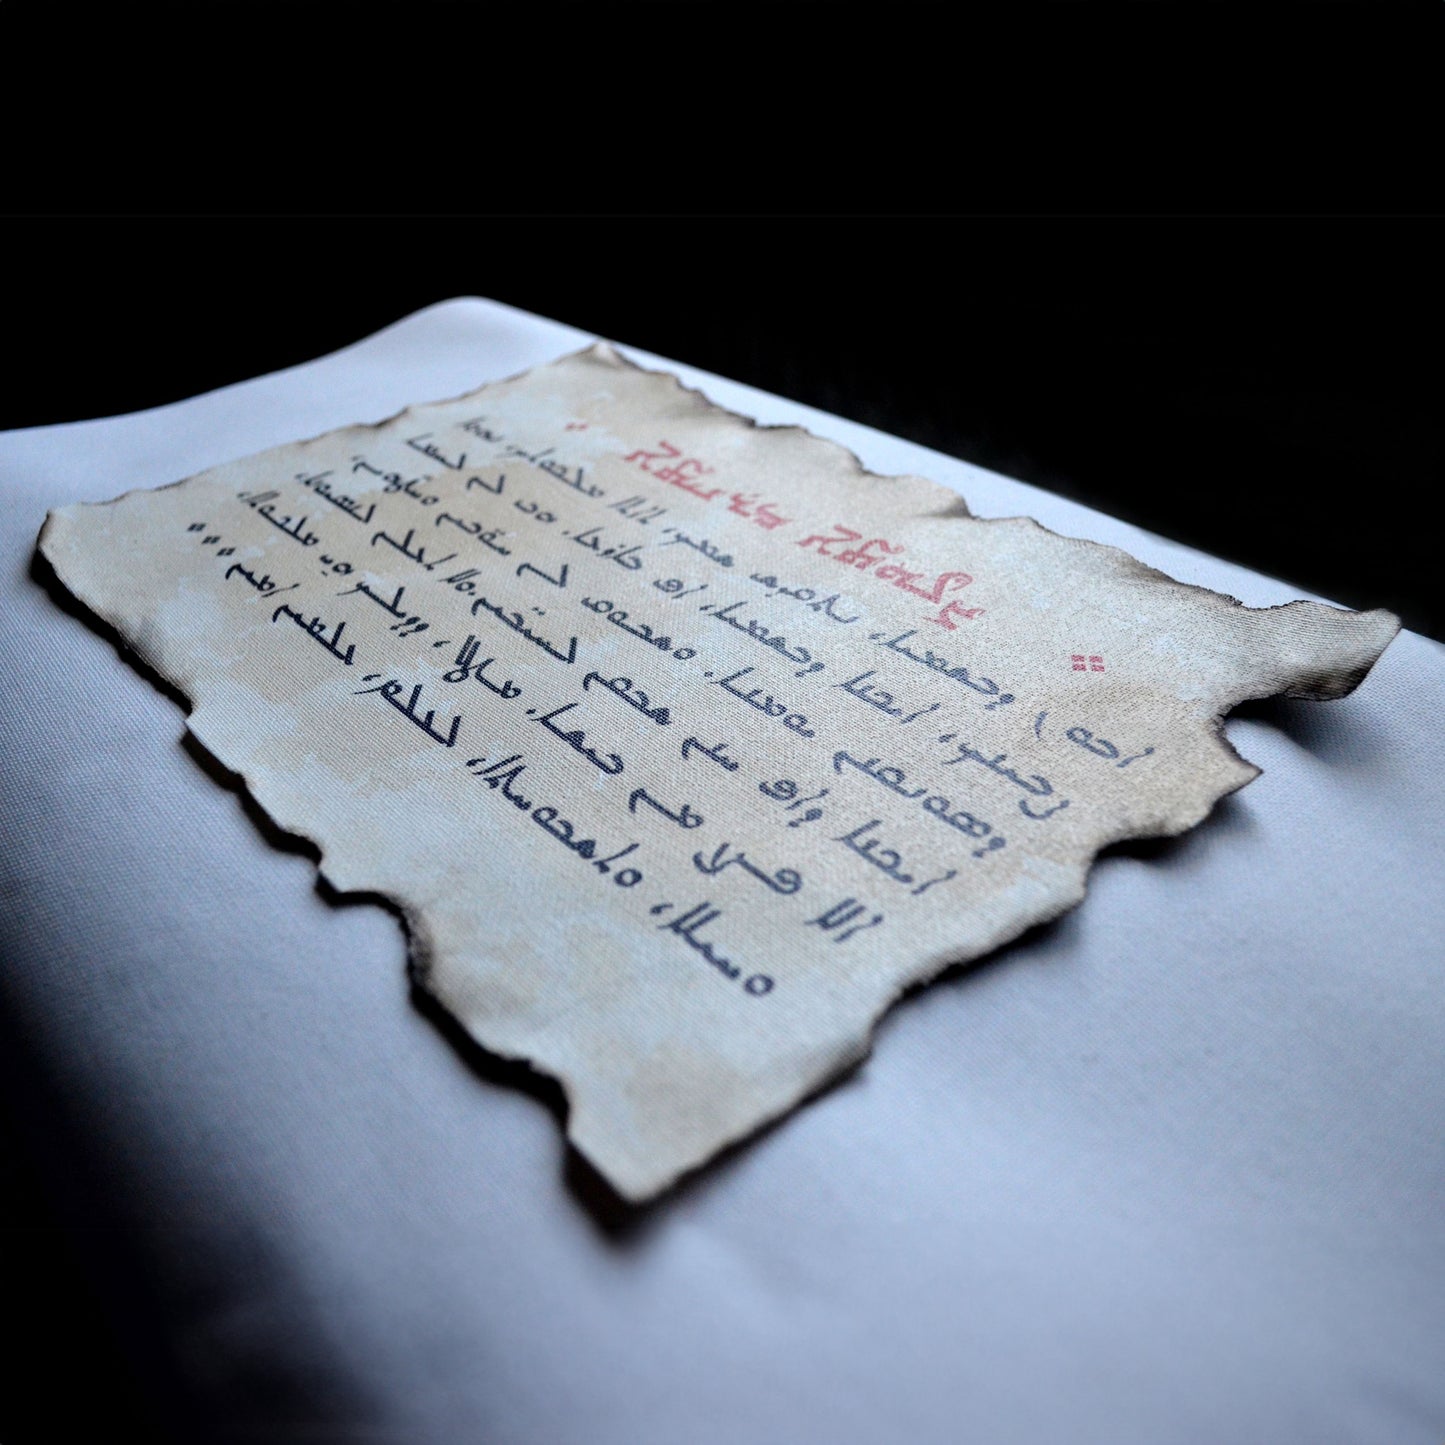 ܀ ܨܠܘܬܐ ܡܪܢܝܬܐ ܀
ܐܒܘܢ ܕܒܫܡܝܐ، ܢܬܩܕܫ ܫܡܟ، ܬܐܬܐ ܡܠܟܘܬܟ، ܢܗܘܐ
ܨܒܝܢܟ، ܐܝܟܢܐ ܕܒܫܡܝܐ، ܐܦ ܒܐܪܥܐ. ܗܒ ܠܢ ܠܚܡܐ
ܕܣܘܢܩܢܢ ܝܘܡܢܐ. ܘܫܒܘܩ ܠܢ ܚܘ̈ܒܝܢ ܘܚܛܗ̈ܝܢ،
ܐܝܟܢܐ ܕܐܦ ܚܢܢ ܫܒܩܢ ܠܚܝ̈ܒܝܢ. ܘܠܐ ܬܥܠܢ ܠܢܣܝܘܢܐ،
ܐܠܐ ܦܨܐ ܠܢ ܡܢ ܒܝܫܐ. ܡܛܠ، ܕܕܝܠܟ ܗܝ ܡܠܟܘܬܐ،
ܘܚܝܠܐ، ܘܬܫܒܘܚܬܐ، ܠܥܠܡ، ܥܠܡܝܢ ܐܡܝܢ...